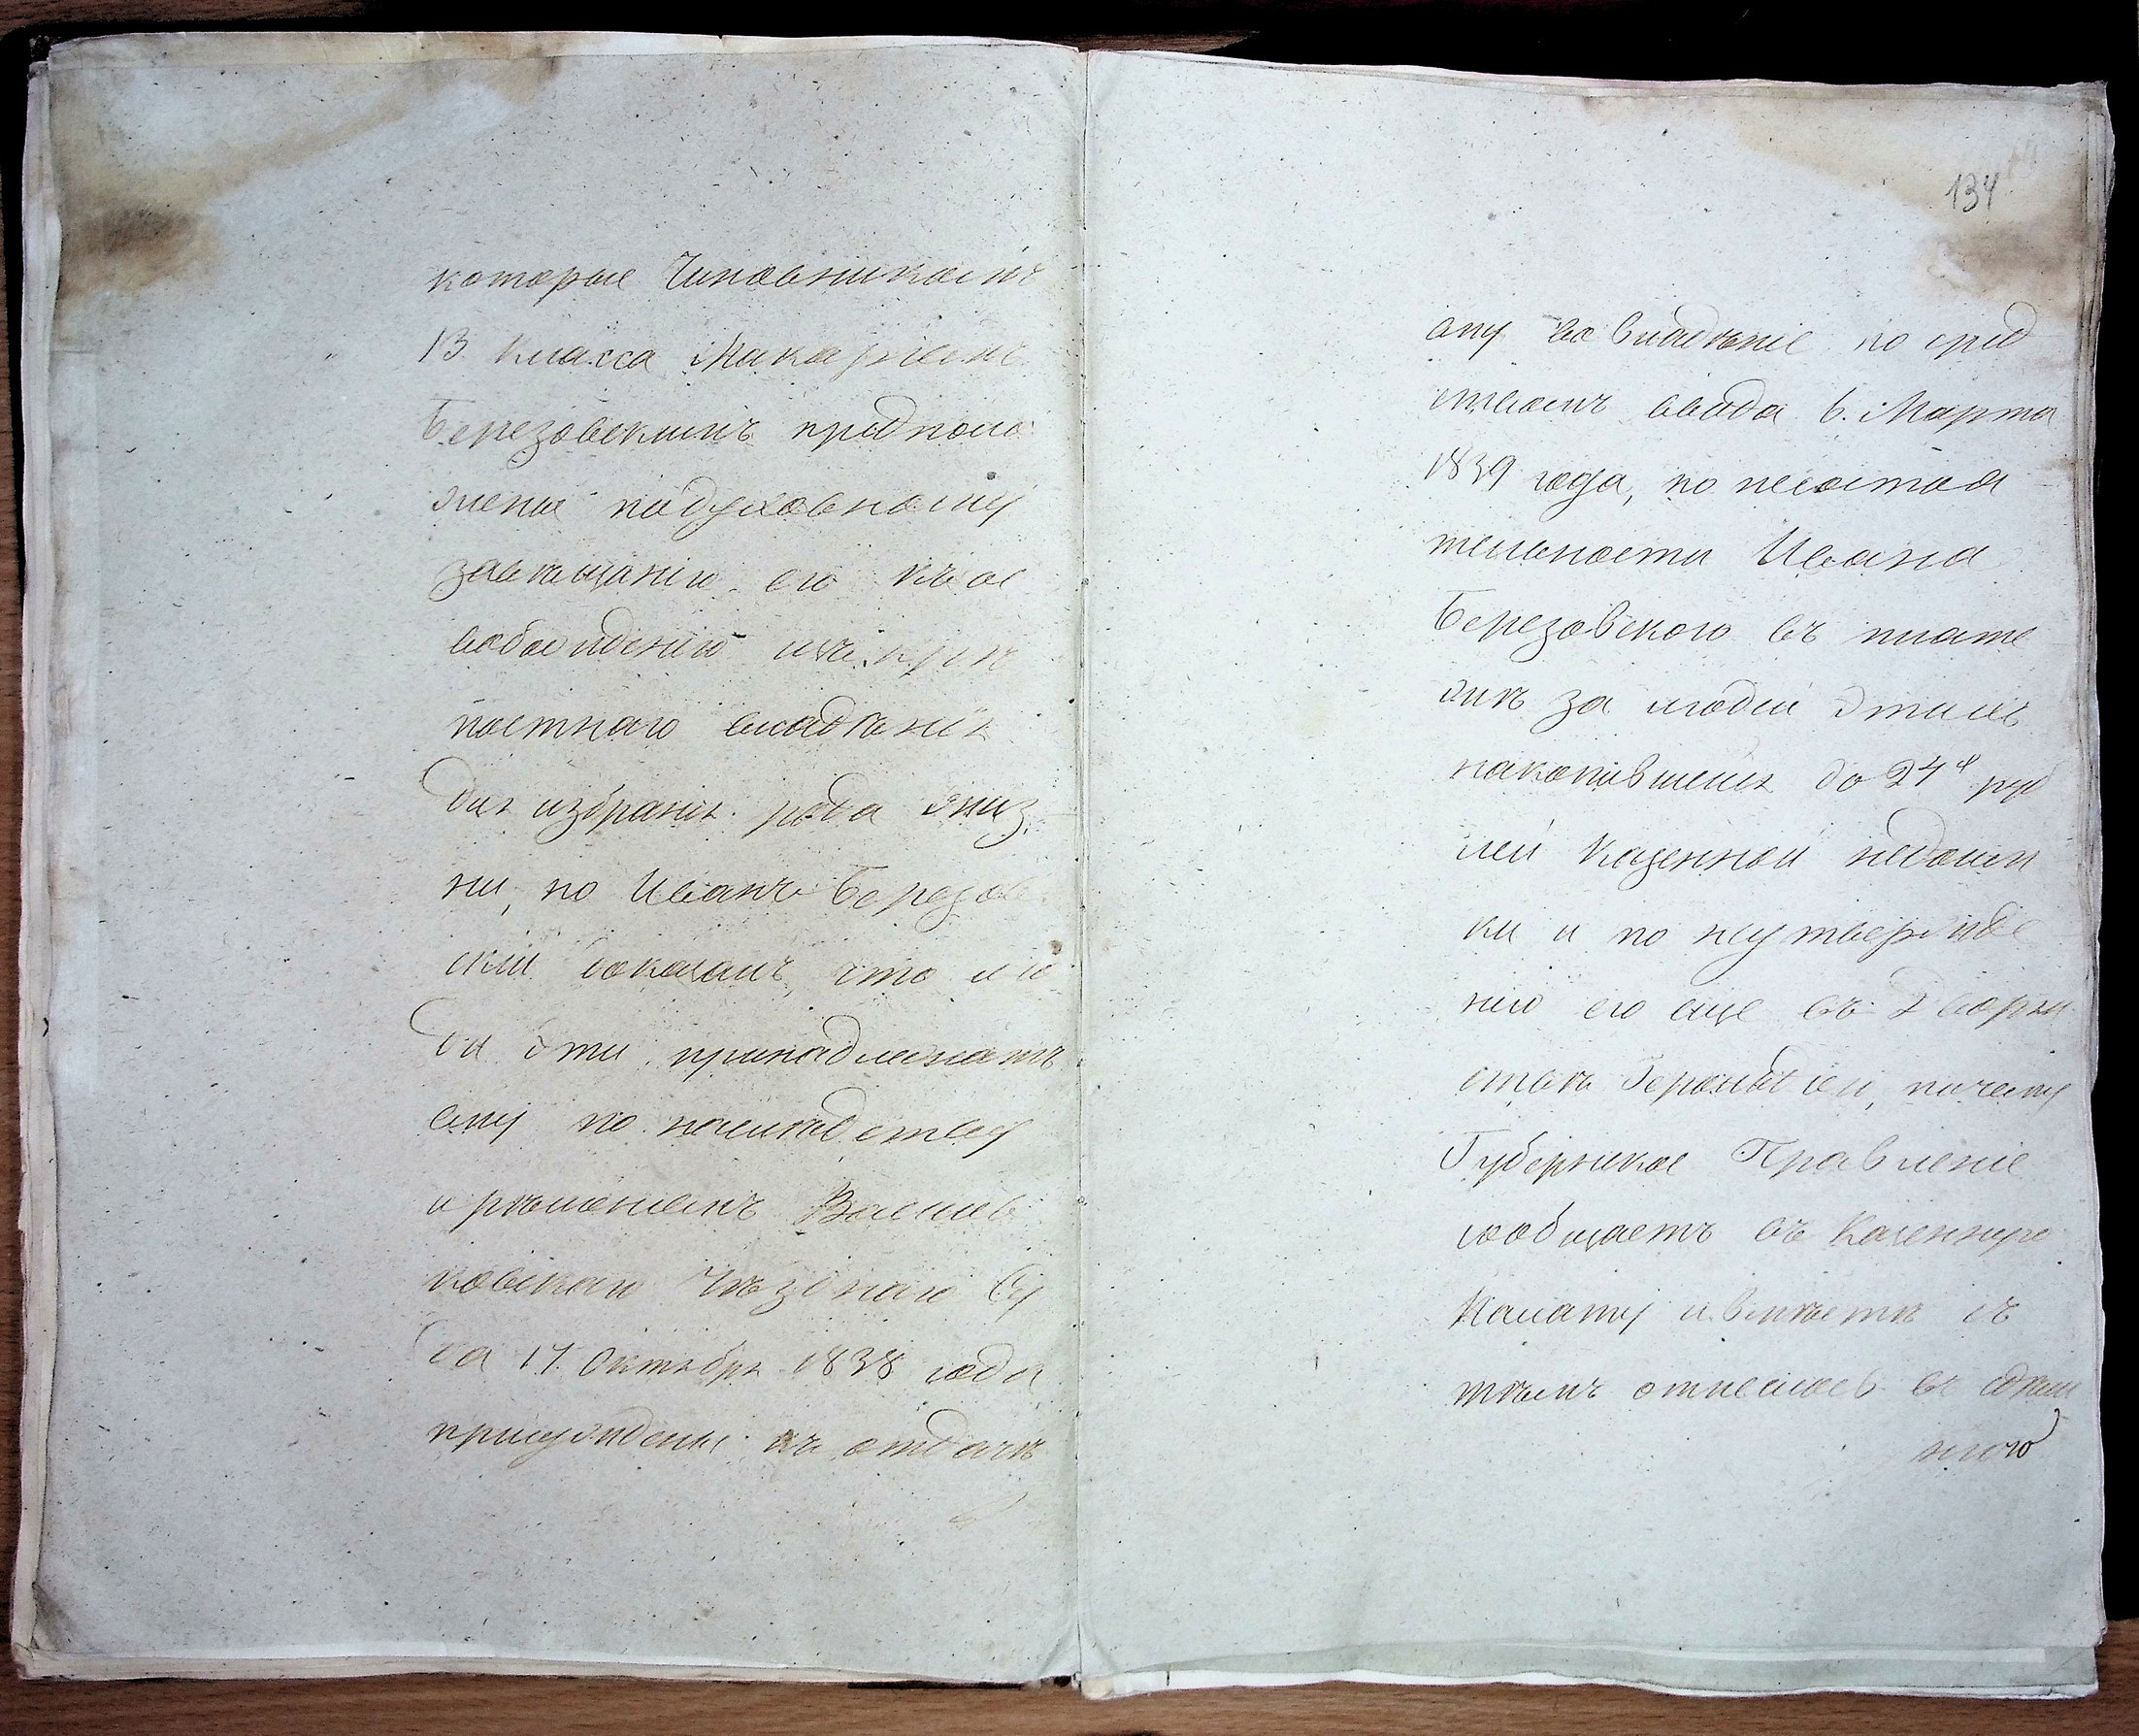 которые Чиновникомъ
13 класса Макаріемъ
Березовскимъ предполо
жены подуховному
завѣщанію его къ ос
вобожденію изъ крѣ
постнаго владѣнія
для избранія рода жиз
ни, но Иванъ Березов
скій доказалъ, что лю
ди эти принадлежатъ
ему по наслѣдству
и рѣшеніемъ Василь
ковскаго Уѣзднаго Су
да 17 Октября 1838 года
присуждены къ отдачѣ
134
ему во владѣніе по сред
ствомъ ввода 6. Марта
1839 года, по несостоя
тельности Ивана
Березовскаго въ плате
жѣ за людей этихъ
накопившейся до 244 руб
лей казенной недоим
ки и по неутвержде
нію его еще въ Дворян
ствѣ Герольдіею, почему
Губернское Правленіе
сообщаетъ въ Казенную
Палату и вмѣстѣ съ
тѣмъ отнеслось въ здѣш
нюю